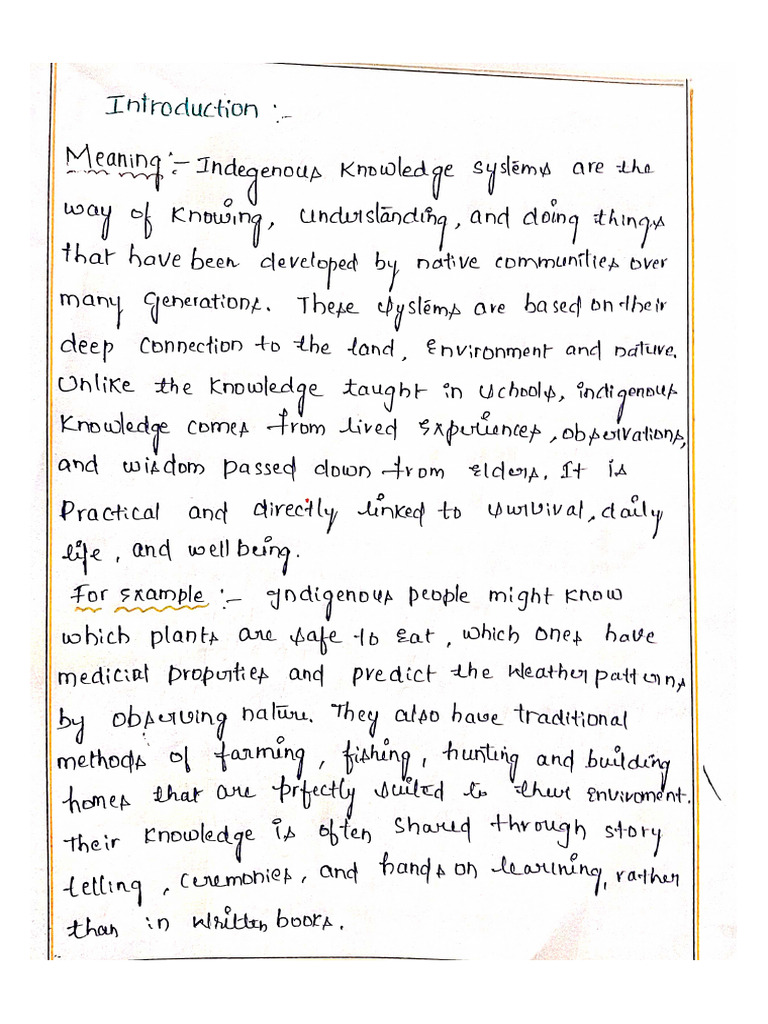 Introduction :-
Meaning :- Indegenous Knowledge systems are the
way of Knowing, understanding, and doing things
that have been developed by native communities over
many Generations. These systems are based on their
deep connection to the land, Environment and nature.
Unlike the Knowledge taught in schools, indigenous
Knowledge comes from lived experiences, observations,
and wisdom passed down from elders. It is
Practical and directly linked to survival, daily
life, and well being.
For Example :- Indigenous people might know
which plants are safe to eat, which ones have
medicial properties and predict the weather patterns
by observing nature. They also have traditional
methods of farming, fishing, hunting and building
homes that are prfectly suited to their enviroment.
Their Knowledge is often shared through story
telling, ceremonies, and hands on learning, rather
than in written books.